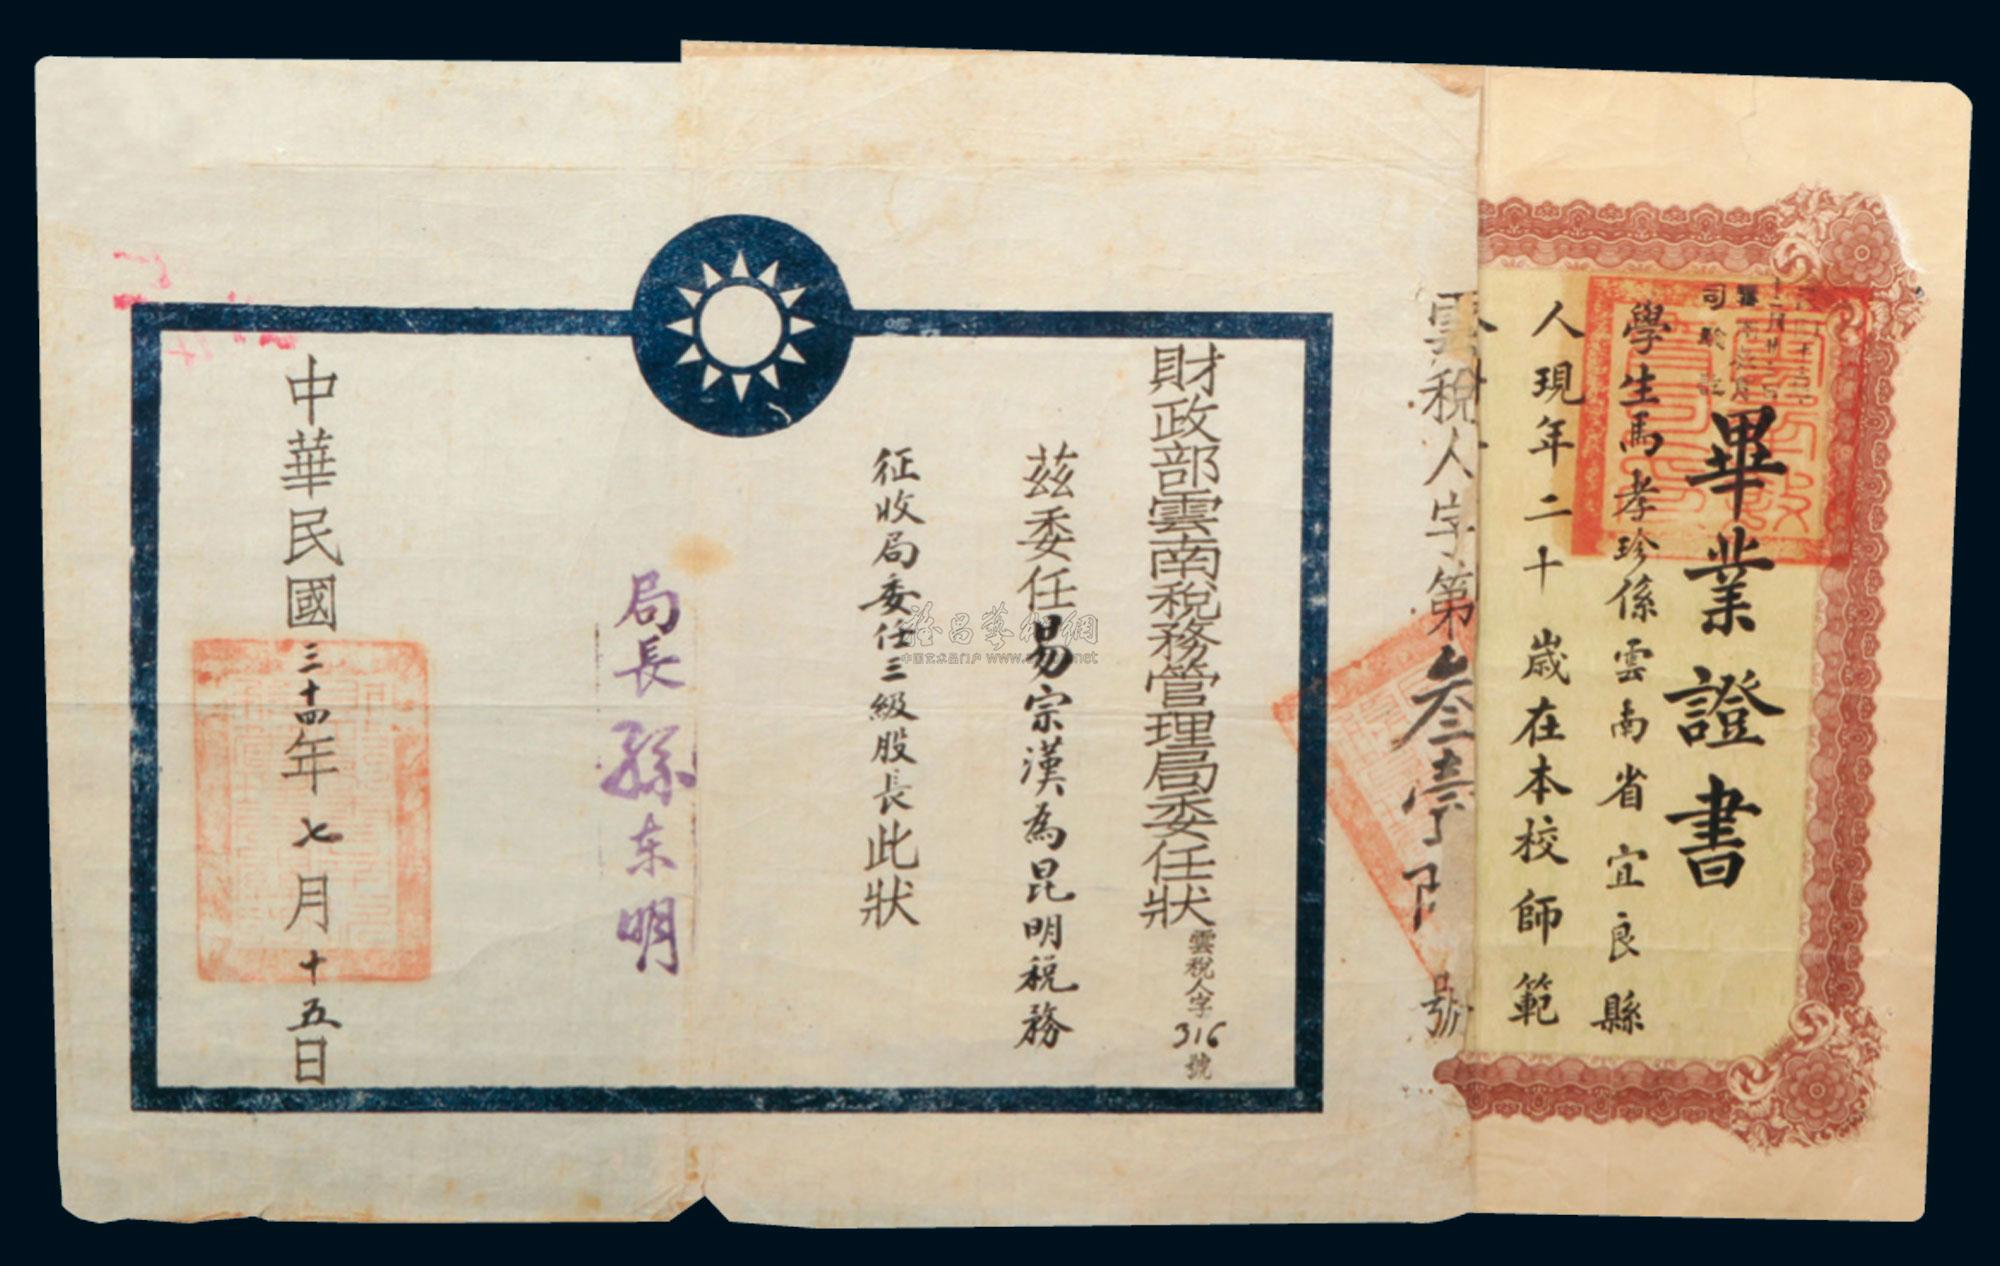 畢業證書
學生馬孝珍係雲南省宜良縣
人現年二十歲在本校師範
雲稅人字第叁壹陸號
財政部雲南稅務管理局委任狀
雲稅人字316號
茲委任易宗漢為昆明稅務
征收局委任三級股長此狀
局長孫东明
中華民國三十四年七月十五日
雅昌藝術網
中国艺术品门户 www.